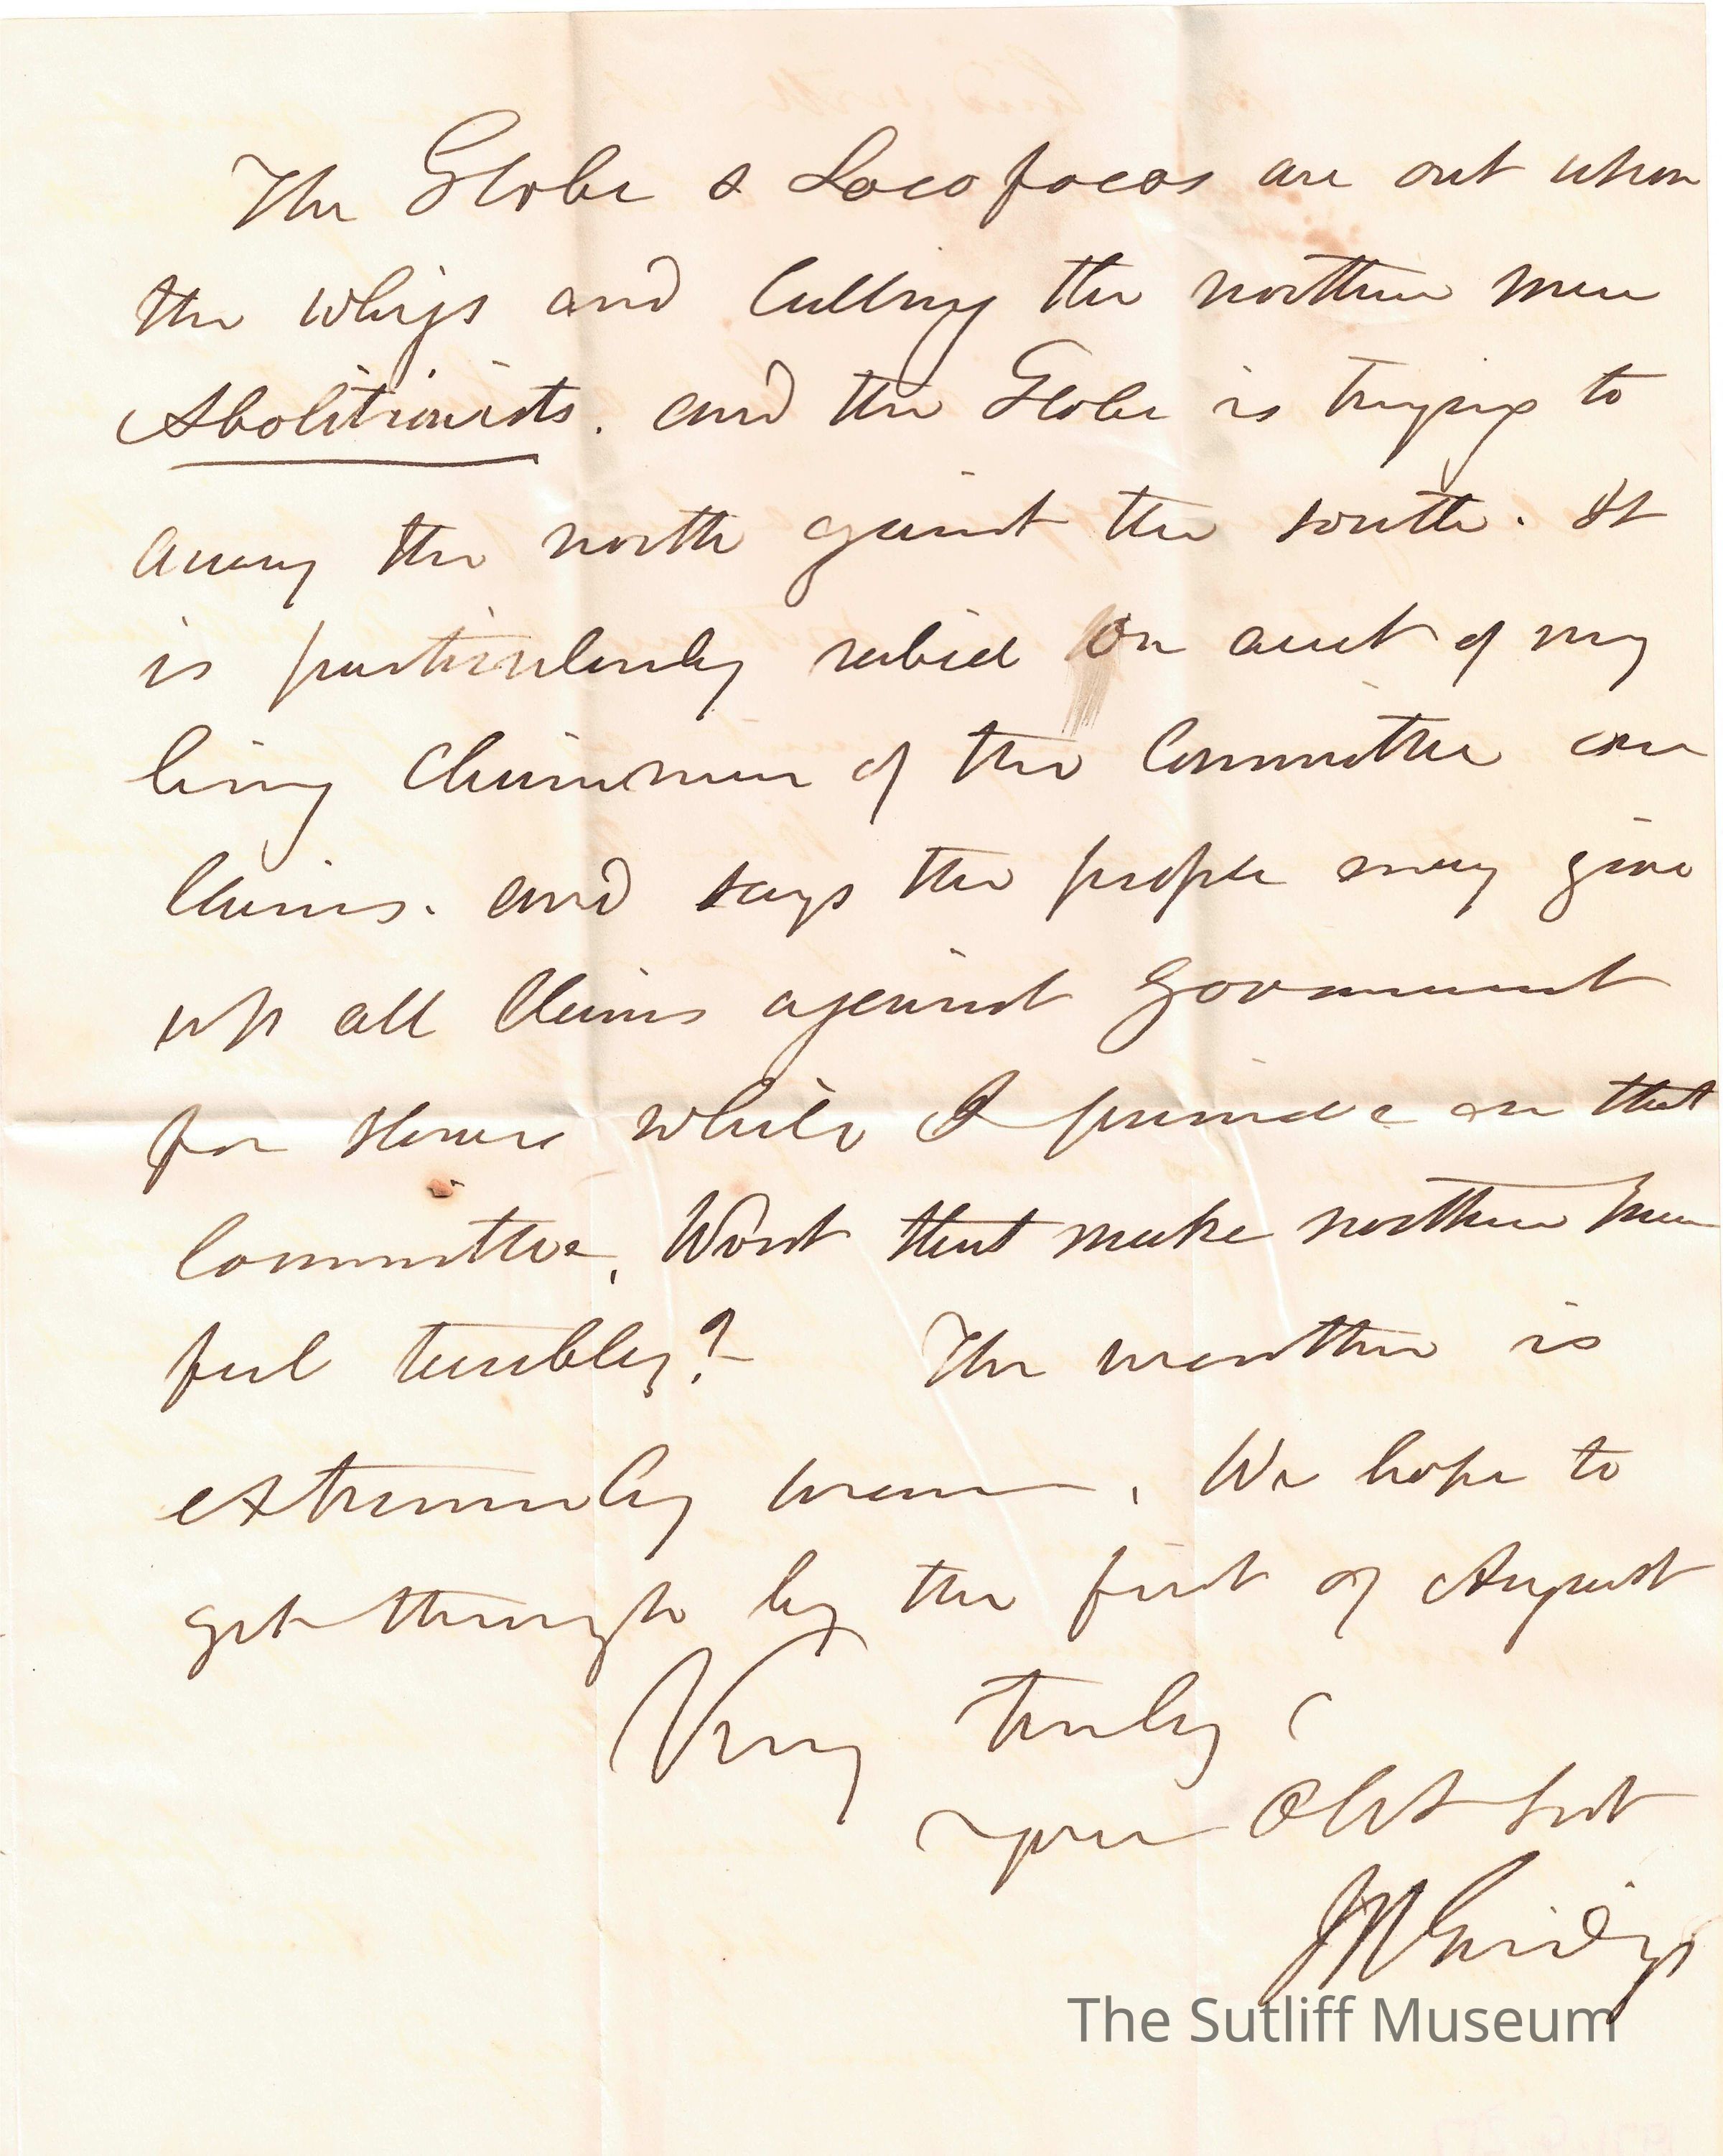 The Globe & Locofocos are out upon
the whigs and calling the northern men
Abolitionists. and the Globe is trying to
array the north gainst the south. It
is particularly rabid on acct of my
being Chairman of the Committee on
Claims. and says the people may give
up all Claims against Government
for slaves while I preside on that
Committee. Wont that make northern men
feel terribly? The weather is
extremely warm. We hope to
get through by the first of August
Very truly
your Obt Svt
J R Giddings
The Sutliff Museum